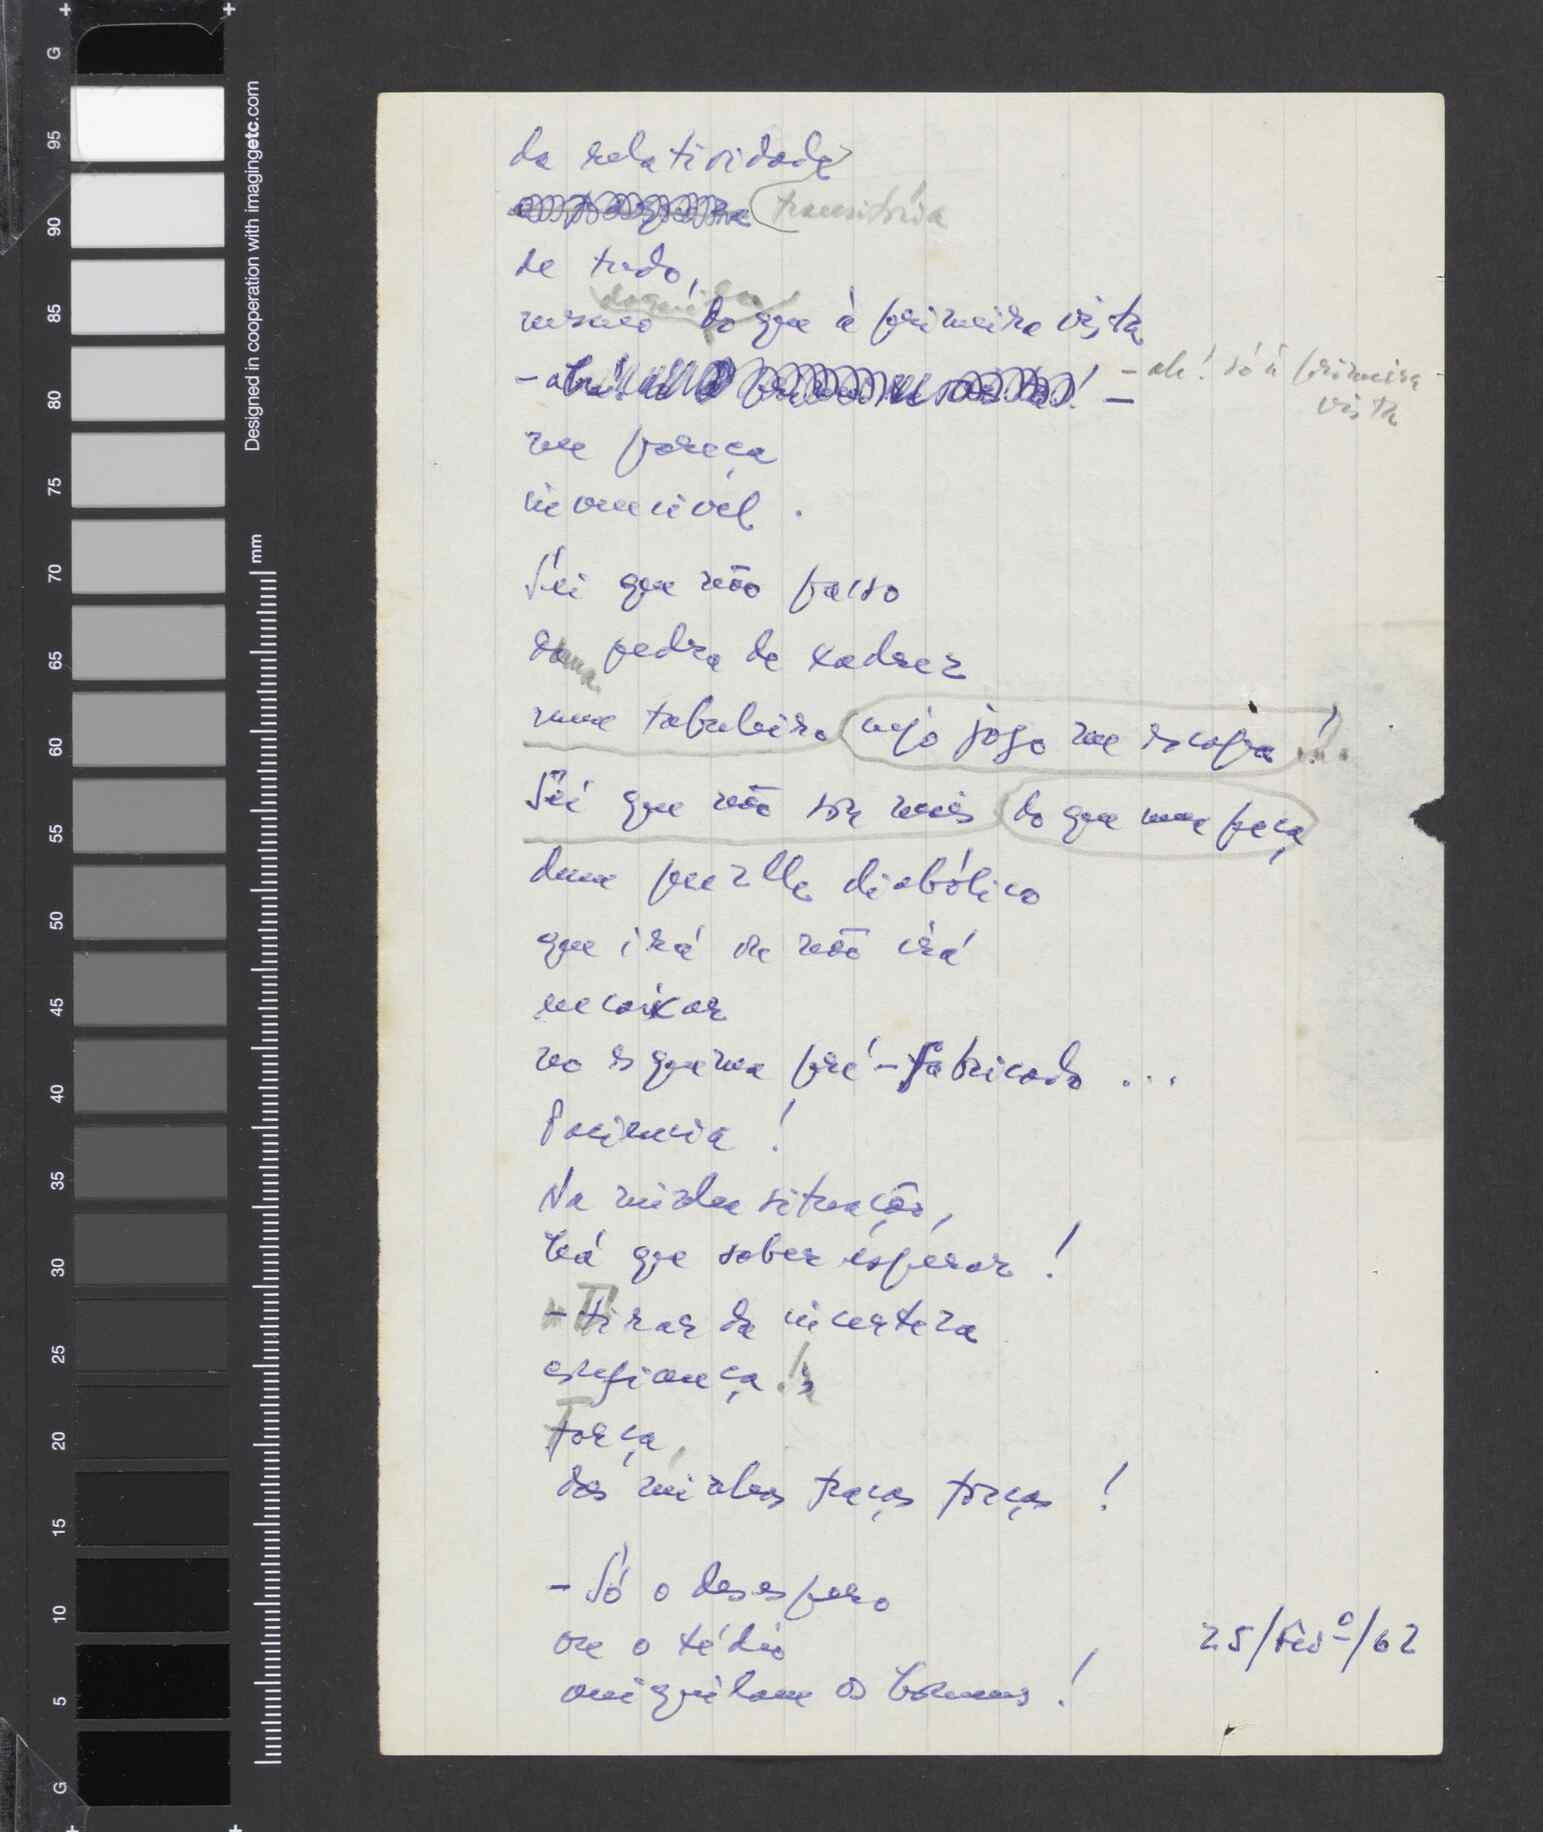 da relatividade
transitória
de tudo,
mesmo do que à primeira vista
- ah! só à primeira
vista
me pareça
invencivel.
Sei que não passo
duma pedra de xadrez
num tabuleiro cujo jogo me escapa!
Sei que não sou mais do que uma peça
dum puzzle diabólico
que irá ou não irá
encaixar
no esquema pré-fabricado ...
Paciencia!
Na minha situação,
há que saber esperar!
- Tirar da incerteza
esperança!
Força,
das minhas fracas forças!
- Só o desespero
ou o tédio
aniquilam os homens!
25/Fev.º/62
G
95
90
85
80
75
70
65
60
55
50
45
40
35
30
25
20
15
10
5
G
Designed in cooperation with imagingetc.com
mm